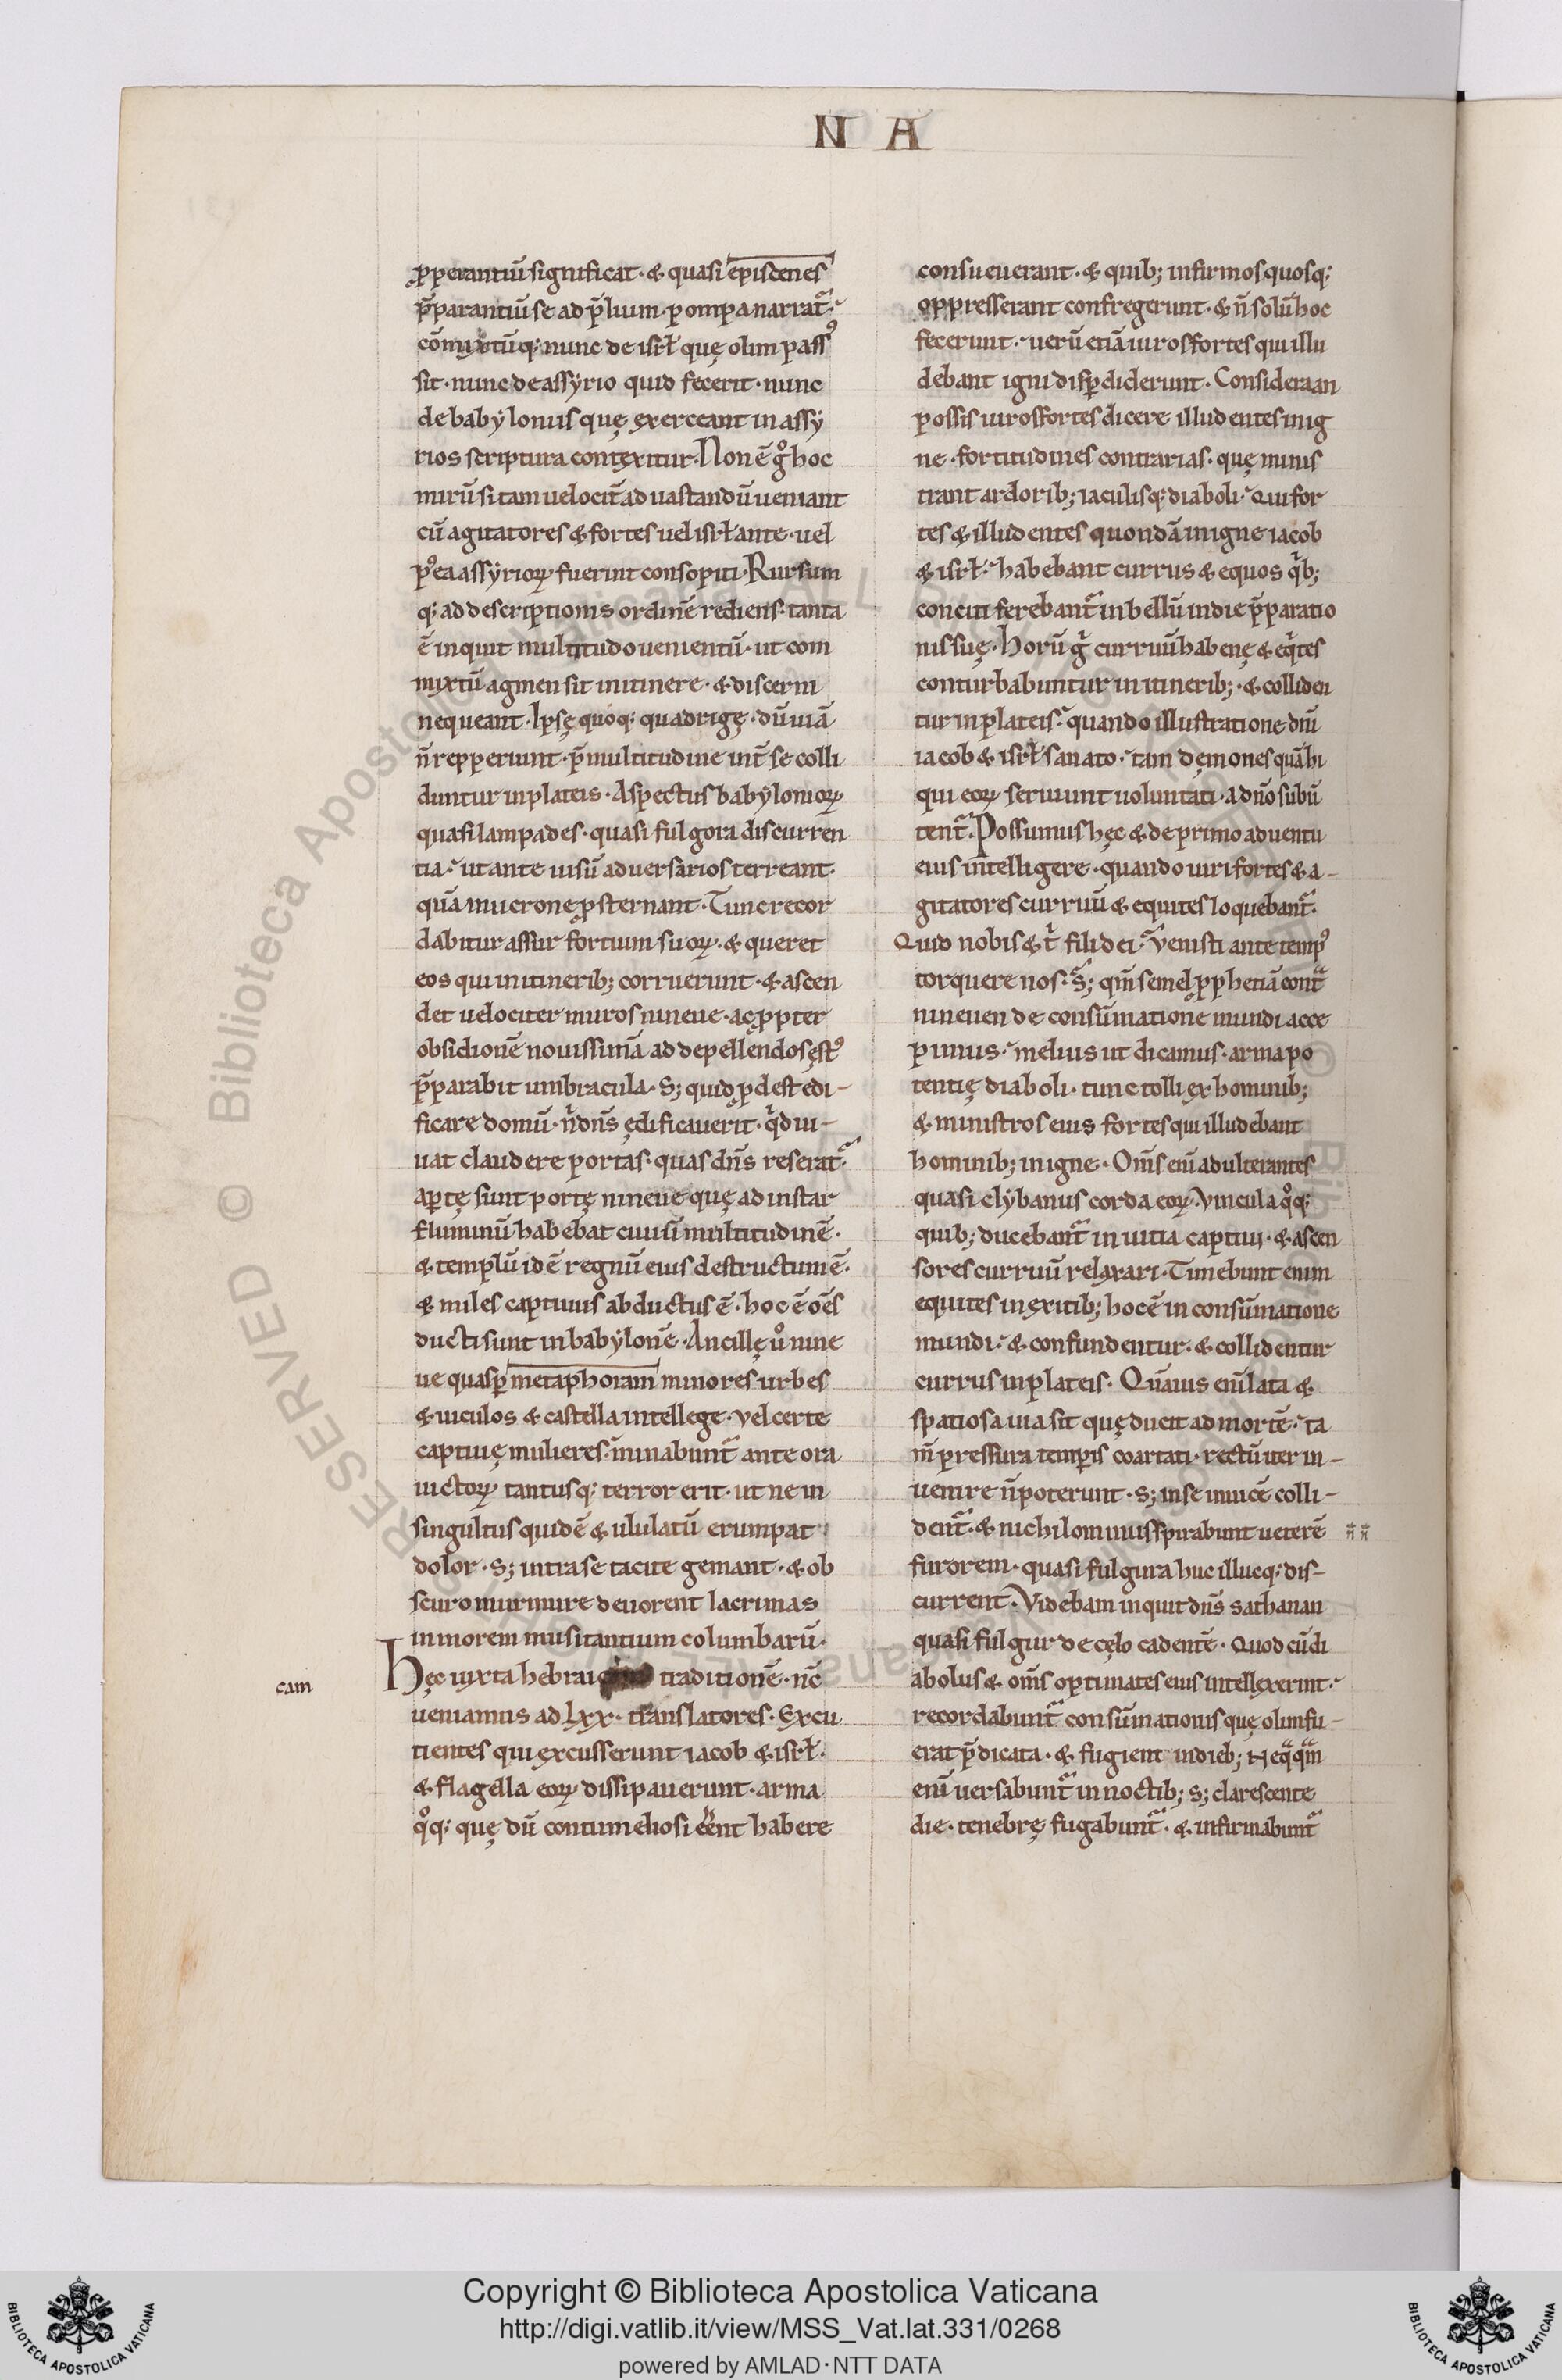 N A
ꝓperantiū significat · & quasi episdenes
p̄parantiū se ad p̄lium · pompa narrat᷑ ·
cōmixtūq; nunc de isrl̄ quę olim passꝰ
sit · nunc de assyrio quid fecerit · nunc
de babyloniis quę exerceant in assy
rios scriptura contexitur · Non ē gͦ hoc
mirū si tam velocit̄ ad vastandū veniant
cū agitatores & fortes vel isrl̄ ante · vel
pꝰea assyrioꝝ fuerint consopiti · Rursum
q; ad descriptionis ordinē rediens · tanta
ē inquit multitudo venientū · ut com
mixtū agmen sit in itinere · & discerni
nequeant · Ipsę quoq; quadrigę · dū viā
n̄ repperiunt · p̄ multitudine int̄ se colli
duntur in plateis · Aspectus babylonioꝝ
quasi lampades · quasi fulgora discurren
tia · ut ante visū adversarios terreant ·
quā mucrone ꝓsternant · Tunc recor
dabitur assur fortium suoꝝ · & queret
eos qui in itinerib; corruerunt · & ascen
det velociter muros nineue · ac ꝓpter
obsidionē novissimā ad depellendos ęstꝰ
p̄parabit umbracula · S; quid ꝓdest edi-
ficare domū · n̊ dn̄s ędificaverit · qͥd iu-
vat claudere portas · quas dn̄s reserat᷑ ·
aꝑtę sunt portę nineue quę ad instar
fluminū habebat civiū multitudinē ·
& templū id ē regnū eius destructum ē ·
& miles captivus abductus ē · hoc ē oēs
ducti sunt in babylonē · Ancillę ůͦ nine
ue quas ꝑ metaphoram minores urbes
& viculos & castella intellege · vel certe
captivę mulieres · minabunt᷑ ante ora
victoꝝ tantusq; terror erit · ut ne in
singultus quidē & ululatū erumpat
dolor · S; intra se tacite gemant · & ob
scuro murmure devorent lacrimas
in morem musitantium columbarū ·
Hęc iuxta hebrai traditionē · nc̄
cam
veniamus ad lxx · translatores · Excu
tientes qui excusserunt iacob & isrl̄ ·
& flagella eoꝝ dissipaverunt · arma
qͦq; quę dū contumeliosi eēnt habere
consueverant · & quib; infirmos quosq;
oppresserant confregerunt · & n̄ solū hoc
fecerunt · verū etiā viros fortes qui illu
debant igni disꝑdiderunt · Considera an
possis viros fortes dicere illudentes in ig
ne · fortitudines contrarias · quę minis
trant ardorib; iaculisq; diaboli · Qui for
tes & illudentes quondā in igne iacob
& isrl̄ · habebant currus & equos qͥb;
conciti ferebant᷑ in bellū in die p̄paratio
nis suę · Horū gͥ curruū habenę & eqͥtes
conturbabuntur in itinerib; · & colliden
tur in plateis · quando illustratione dīu
iacob & isrl̄ sanato · tam dęmones quā hi
qui eoꝝ serviunt voluntati · a dn̄o subū
tent᷑ · Possumus hęc & de primo adventu
eius intelligere · quando viri fortes & a-
gitatores curruū & equites loquebant᷑ ·
Quid nobis & tͥ fili dei · Venisti ante tempꝰ
torquere nos · S; qm̄ semel ꝓphetiā contᷓ
nineuen de consūmatione mundi acce
pimus · melius ut dicamus · arma po
tentię diaboli · tunc tolli ex hominib;
& ministros eius fortes qui illudebant
hominib; in igne · Om̄s eni᷑ adulterantes
quasi clybanus corda eoꝝ · Vincula qͦq;
quib; ducebant᷑ in vitia captivi · & ascen
sores curruū relaxari · Timebunt enim
equites in exitib; hoc ē in consūmatione
mundi · & confundentur · & collidentur
currus in plateis · Quāvis eni᷑ lata &
spatiosa via sit quę ducit ad mortē · ta
m̄ pressura temporis coartati · rectū iter in-
venire n̄ poterunt · S; in se invicē colli-
dent᷑ · & nichilominus spirabunt veterē
furorem · quasi fulgura huc illucq; dis-
current · Videbam inquit dn̄s sathanan
quasi fulgur de cęlo cadentē · Quod cū di
abolus & om̄s optimates eius intellexerint ·
recordabunt᷑ consūmationis quę olim fu-
erat p̄dicata · & fugient in dieb; Neqᷓqᷓm
eni᷑ versabunt᷑ in noctib; S; clarescente
die · tenebrę fugabunt᷑ · & infirmabunt᷑
Copyright © Biblioteca Apostolica Vaticana
http://digi.vatlib.it/view/MSS_Vat.lat.331/0268
powered by AMLAD · NTT DATA